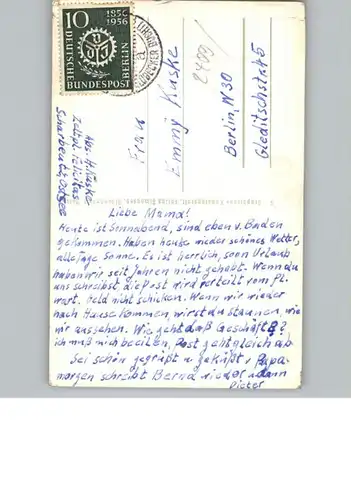 10
1856
1956
DEUTSCHE
BUNDESPOST
BERLIN
Frau
Emmy Kaske
Berlin, W30
Gleditschstr. 45
Abs. H. Kaske
Scharbeutz, Ostsee
Liebe Mama!
Heute ist Sonnabend, sind eben v. Baden
gekommen. Haben heute wieder schönes Wetter,
alle Tage Sonne. Es ist herrlich, so'n Urlaub
haben wir seit Jahren nicht gehabt. Wenn du
uns schreibst, die Post wird verteilt vom Pl.
wart. Geld nicht schicken. Wenn wir wieder
nach Hause kommen, wirst du staunen, wie
wir aussehen. Wie geht das Geschäft?
ich muß mich beeilen, Post geht gleich ab
Sei schön gegrüßt u geküßt v Papa
morgen schreibt Bernd wieder u dann
Dieter